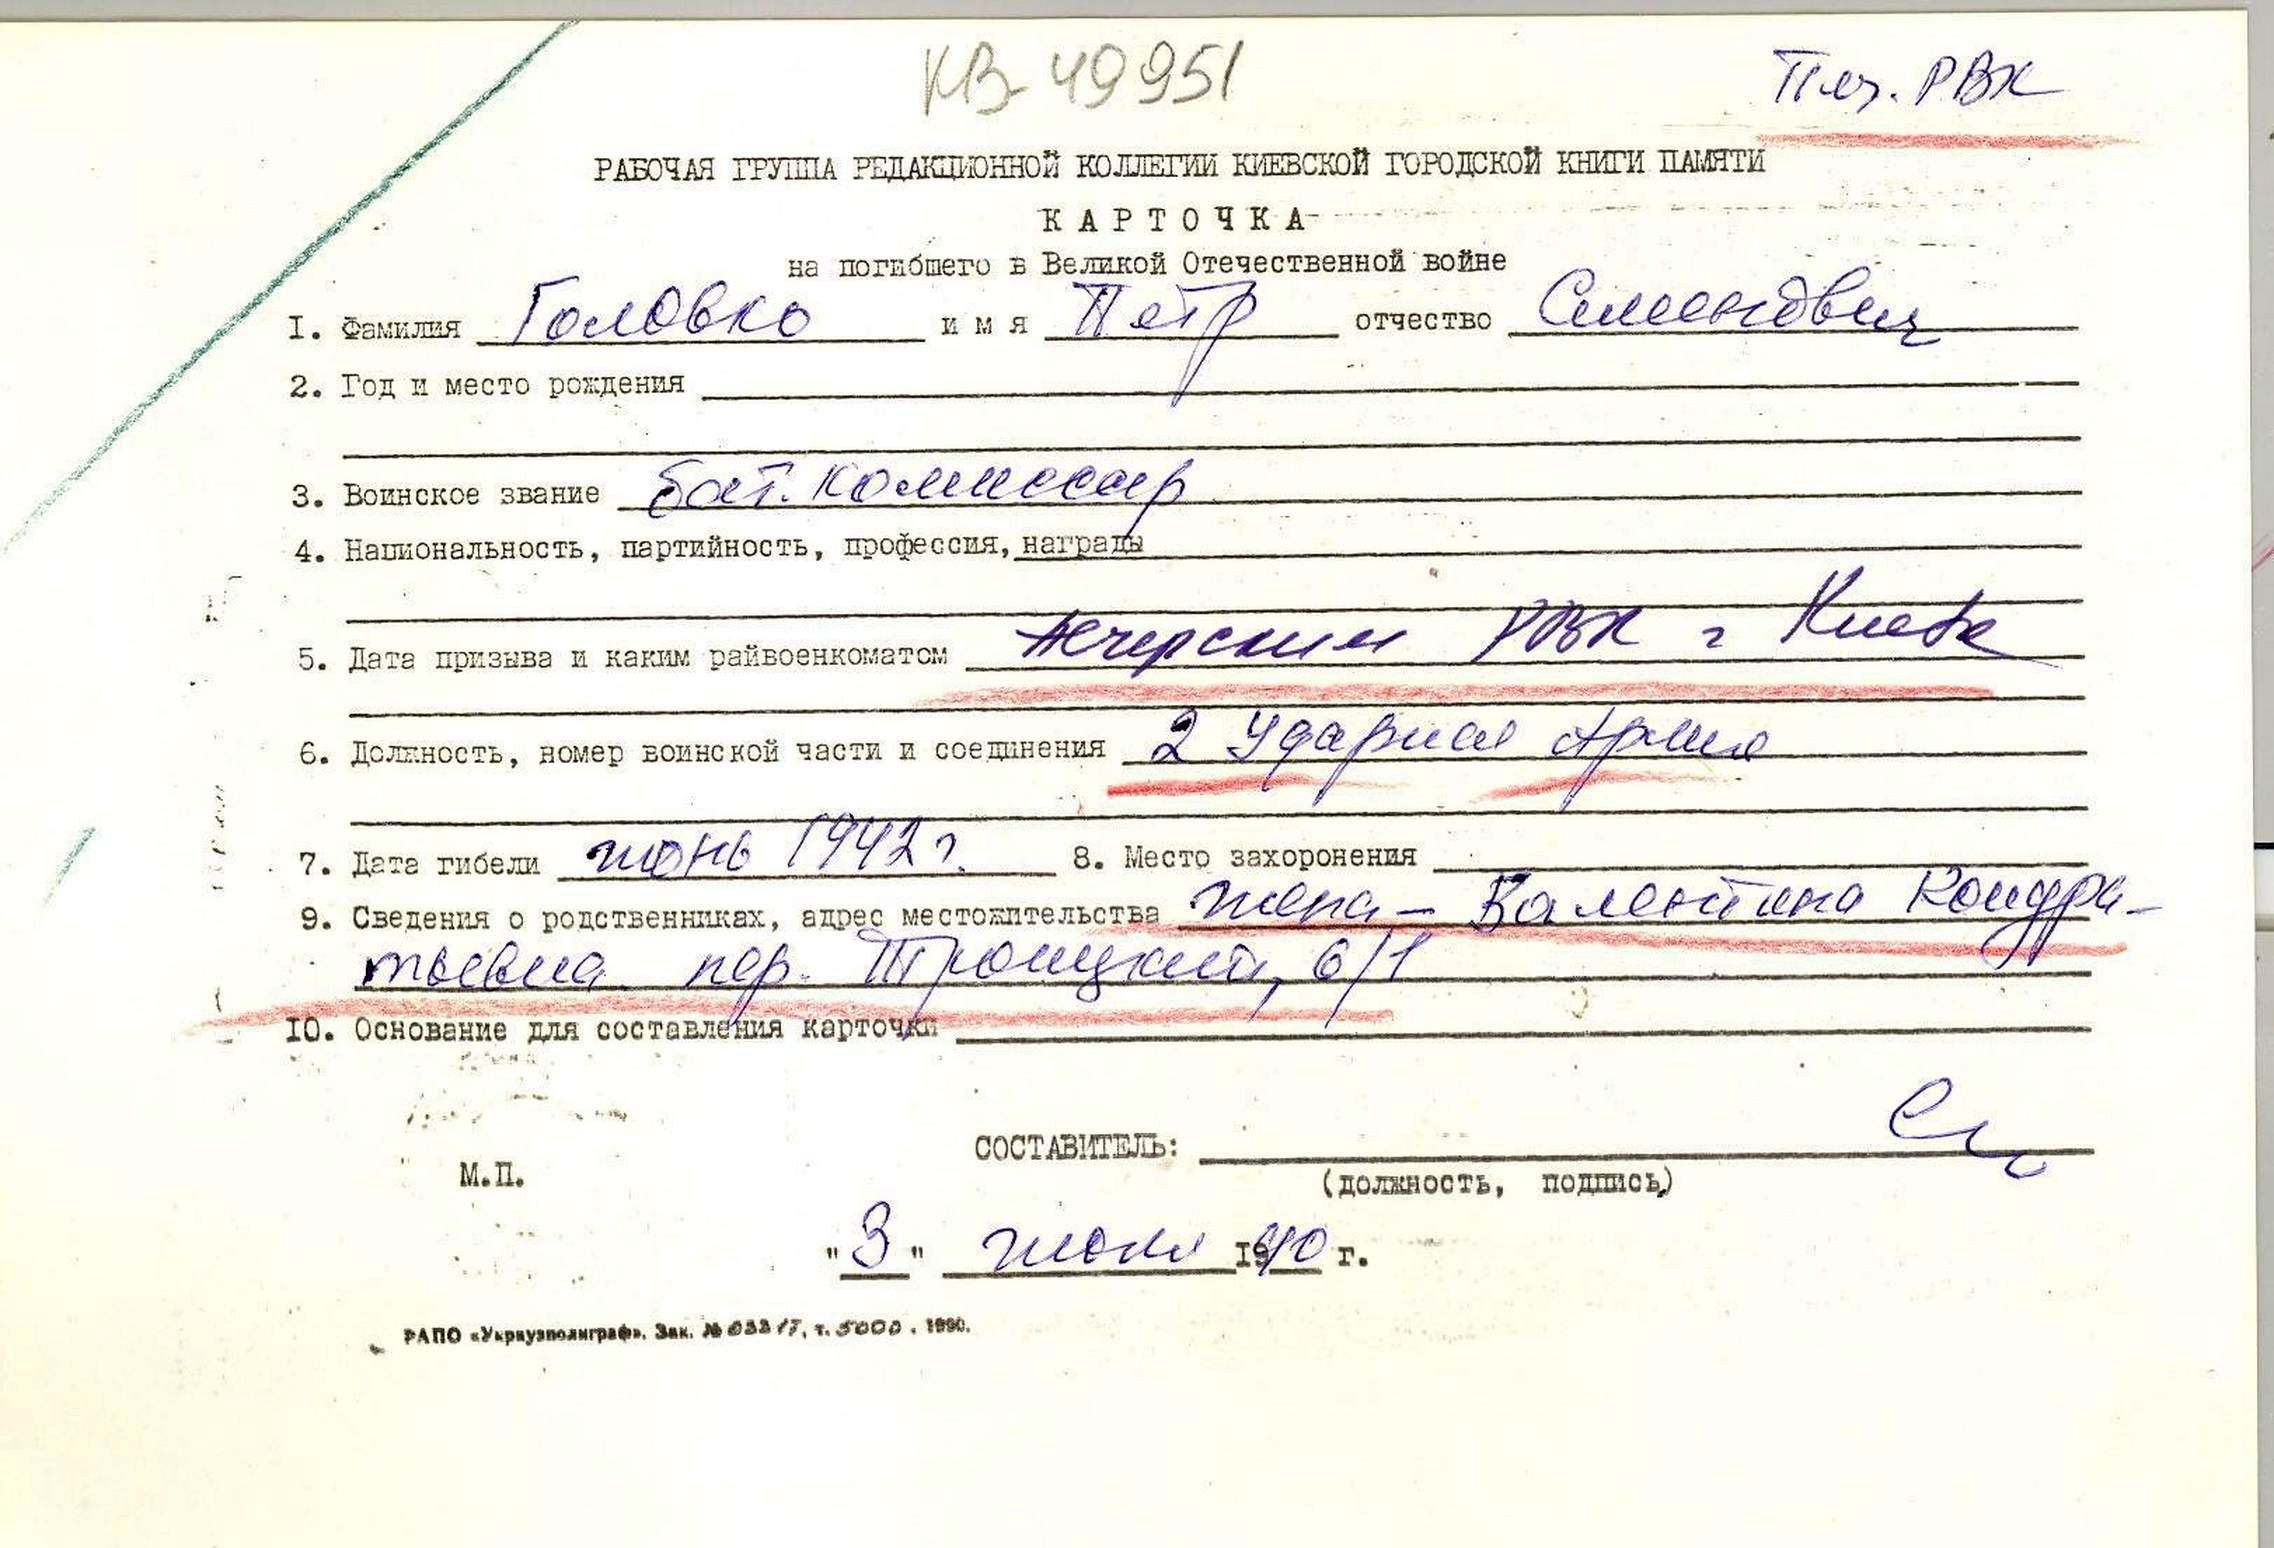 КВ-49951
Печ. РВК
РАБОЧАЯ ГРУППА РЕДАКЦИОННОЙ КОЛЛЕГИИ КИЕВСКОЙ ГОРОДСКОЙ КНИГИ ПАМЯТИ
КАРТОЧКА
на погибшего в Великой Отечественной войне
1. Фамилия Головко имя Петр отчество Семенович
2. Год и место рождения
3. Воинское звание бат. комиссар
4. Национальность, партийность, профессия, награды
5. Дата призыва и каким райвоенкоматом Печерским РВК г Киева
6. Должность, номер воинской части и соединения 2 Ударная Армия
7. Дата гибели июнь 1942 г. 8. Место захоронения
9. Сведения о родственниках, адрес местожительства жена - Валентина Кондра-
тьевна пер. Троицкий, 6/1
10. Основание для составления карточки
СОСТАВИТЕЛЬ:
М.П.
(должность, подпись)
"3" июля 1990 г.
РАПО «Укрвузполиграф». Зак. № т. 5000. 1990.